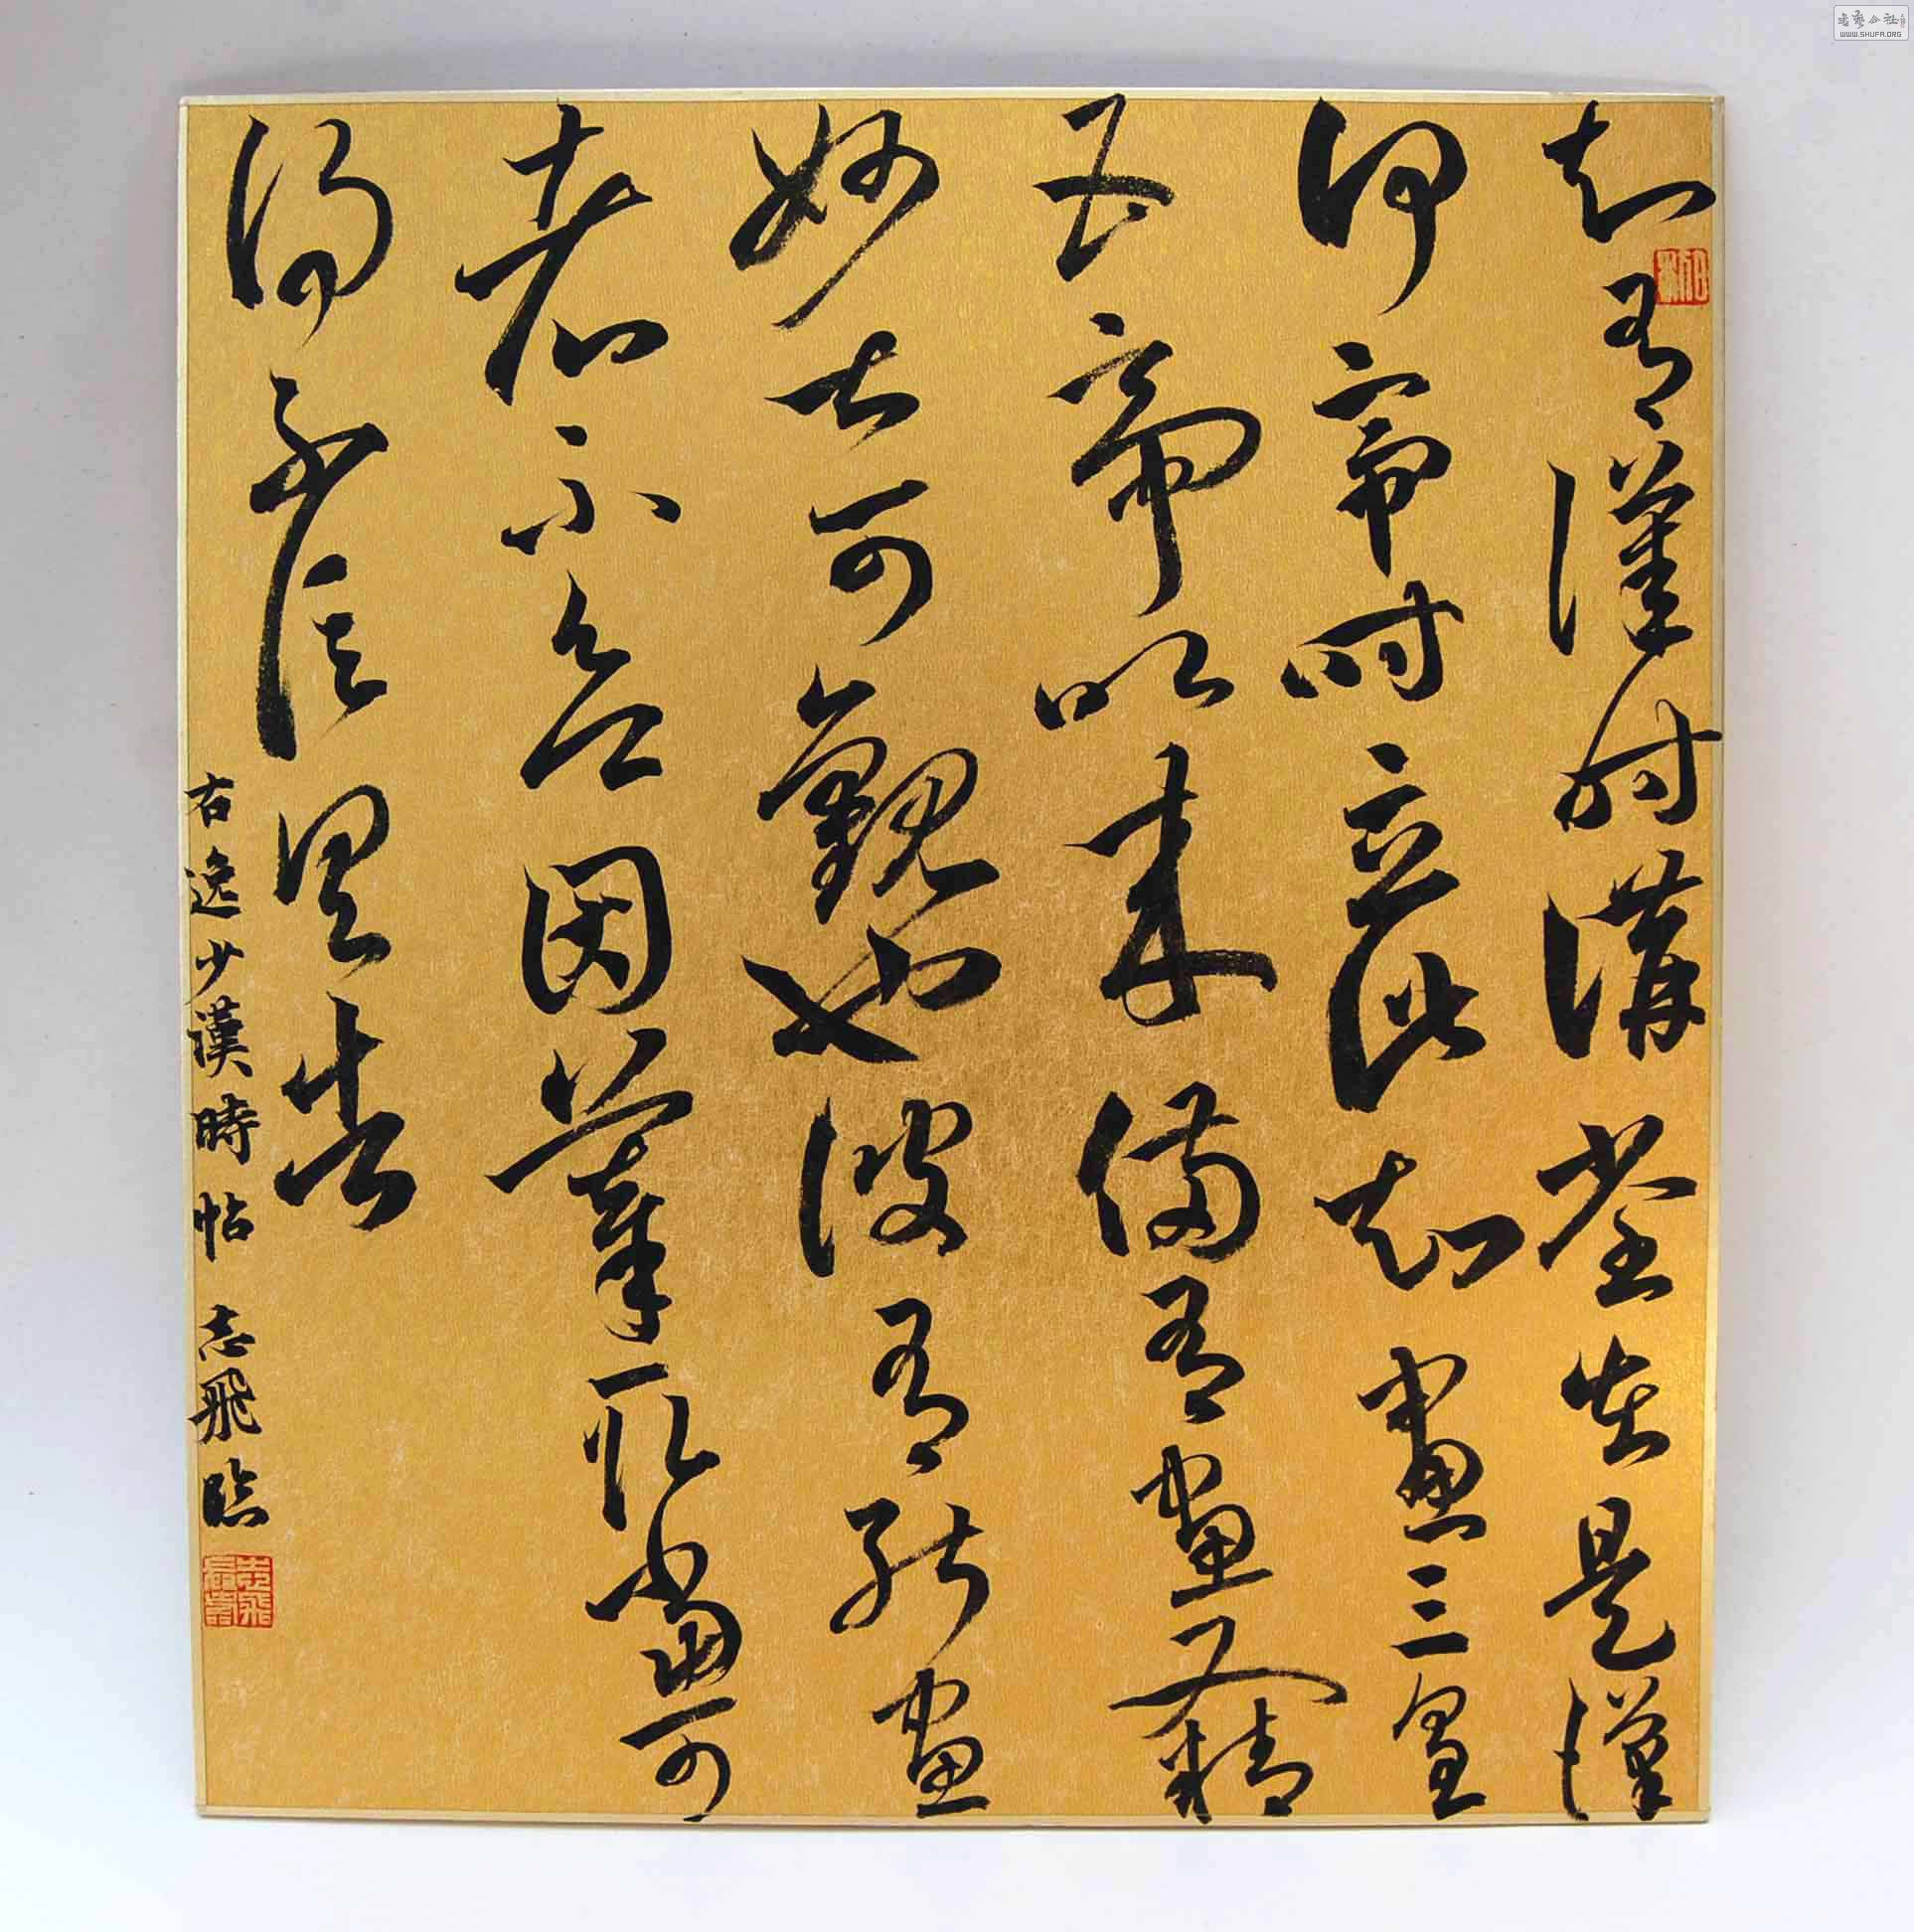 知有漢時講堂在是漢
何帝時立此知畫三皇
五帝以來備有畫又精
妙甚可觀也彼有能畫
者不欲因摹取當可
得不信具告
右逸少漢時帖 志飛臨
書藝公社
WWW.SHUFA.ORG